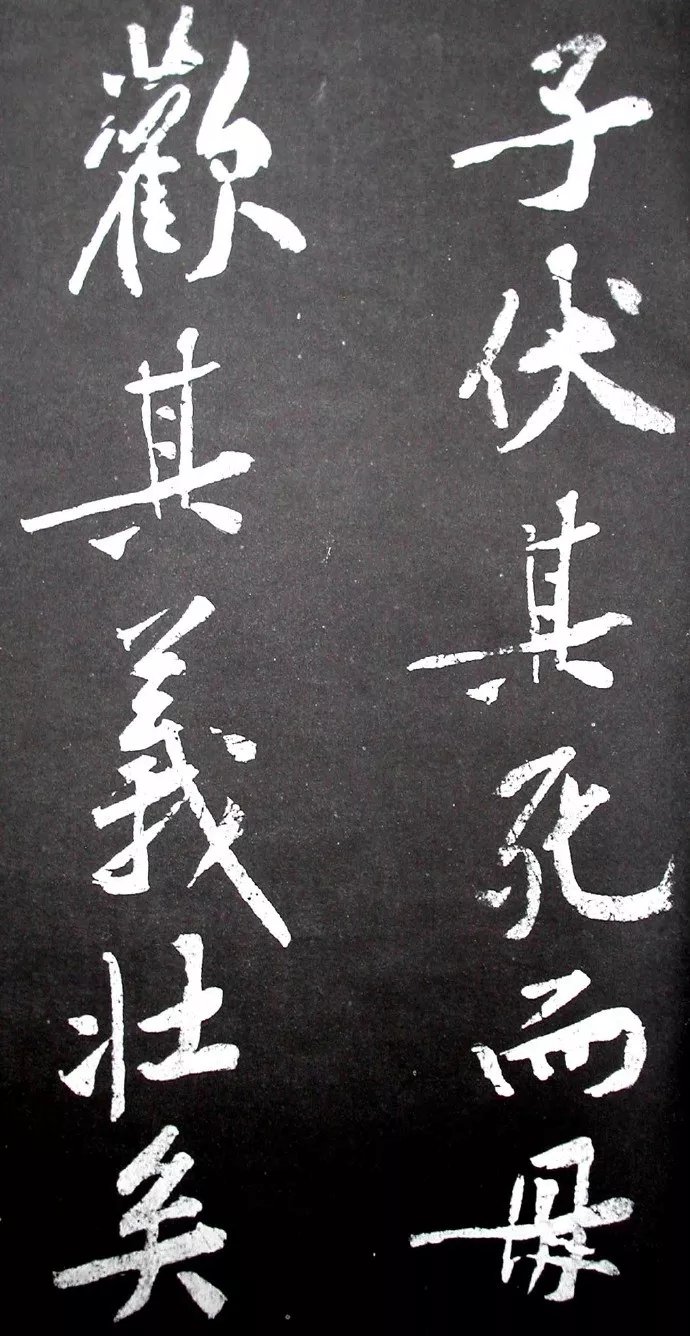 子伏其死而毋
歡其義壯矣